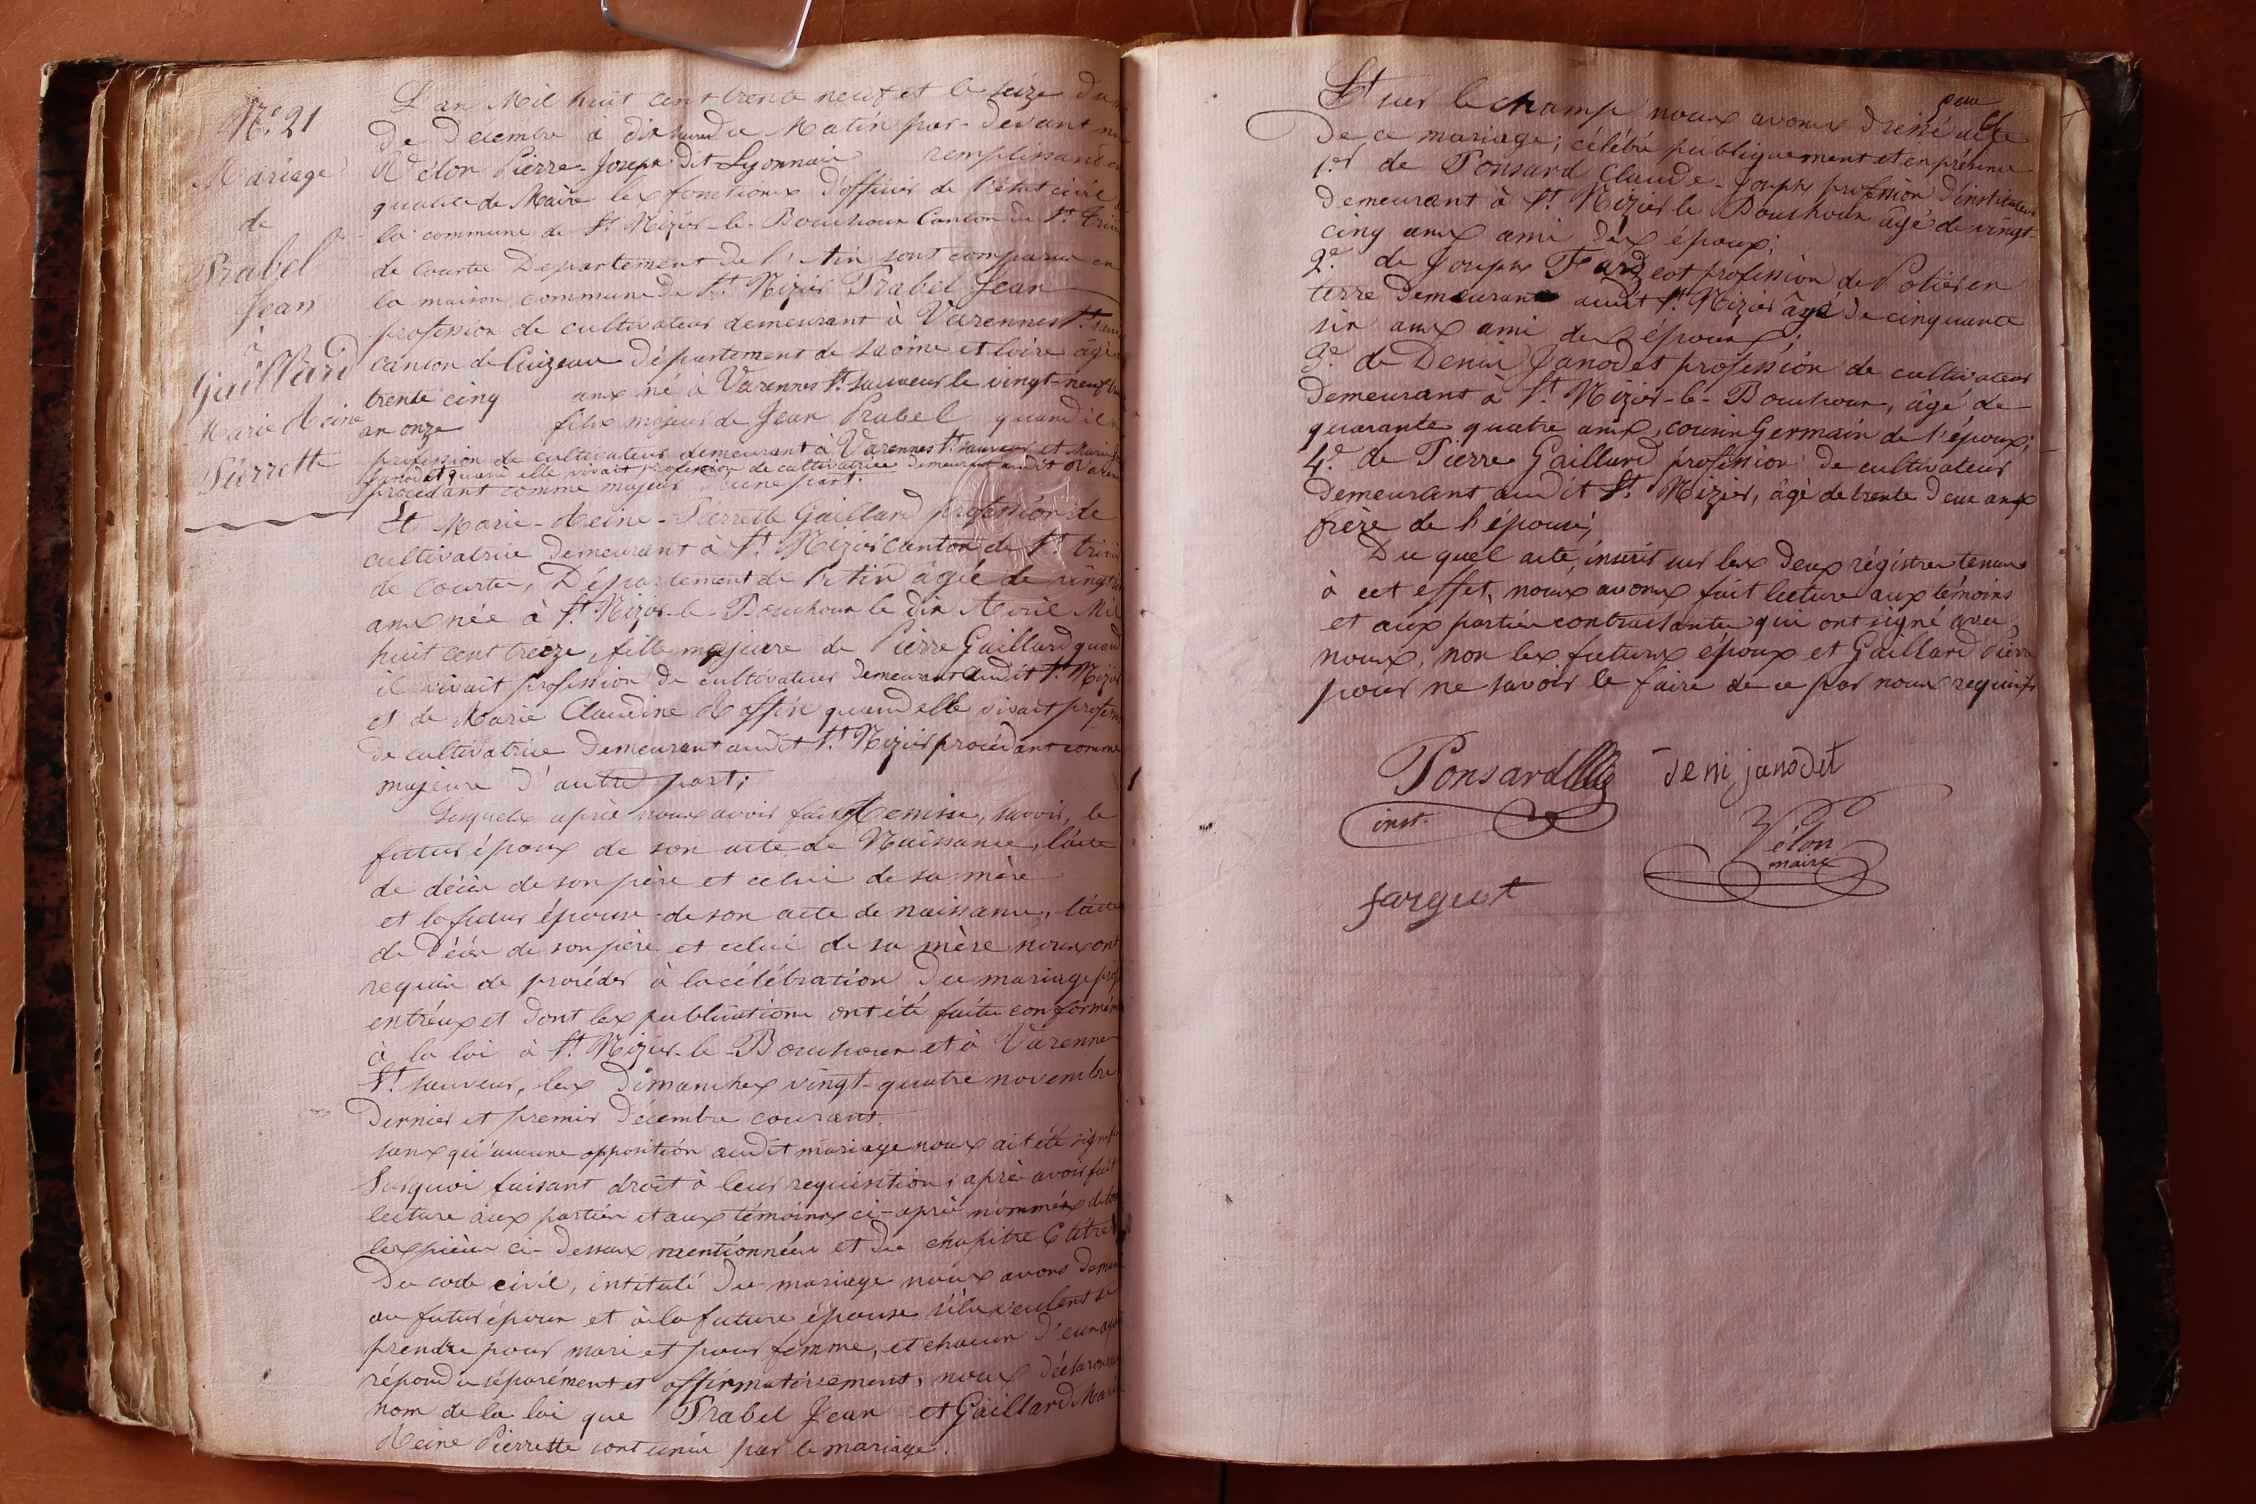 N.º 21
Mariage
de
Prabel
Jean
à
Gaillard
Marie Reine
Pierrette
L'an Mil huit cent trente neuf et le seize du
de Décembre à dix heures du Matin par-devant
Vélon Pierre-Joseph dit Lyonnais remplissant en
qualité de Maire les fonctions d'officier de l'état civil
la commune de St. Nizier-le-Bouchoux Canton de St. Trivier
de Courtes Département de l'Ain sont comparus en
la maison commune de St. Nizier Prabel Jean
profession de cultivateur demeurant à Varennes St. Sauveur
canton de Cuizeau Département de Saône et Loire âgé
trente cinq ans né à Varennes St. Sauveur le vingt-neuf
an onze fils majeur de Jean Prabel quand il
profession de cultivateur demeurant à Varennes St. Sauveur et Marie
Janodet quand elle vivait profession de cultivatrice demeurant audit Varennes
procédant comme majeur d'une part.
Et Marie-Reine-Pierrette Gaillard profession de
cultivatrice demeurant à St. Nizier canton de St. Trivier
de Courtes, Département de l'Ain âgée de vingt
ans née à St. Nizier-le-Bouchoux le dix Avril Mil
huit cent treize, fille majeure de Pierre Gaillard quand
il vivait profession de cultivateur demeurant audit St. Nizier
et de Marie Claudine Roffin quand elle vivait profession
de cultivatrice demeurant audit St. Nizier procédant comme
majeure d'autre part;
Lesquels après nous avoir fait Remise, savoir, le
futur époux de son acte de Naissance, l'acte
de décès de son père et celui de sa mère
et la futur épouse de son acte de naissance, l'acte
de Décès de son père et celui de sa mère nous ont
requis de procéder à la célébration du mariage
entr'eux et dont les publications ont été faites conformém
à la loi à St. Nizier-le-Bouchoux et à Varennes
St. Sauveur, les Dimanches vingt-quatre novembre
dernier et premier Décembre courant.
sans qu'aucune opposition audit mariage nous ait été
Surquoi faisant droit à leur requisition, après avoir fait
lecture aux parties et aux témoins ci-après nommés de
les pièces ci-dessus mentionnées et du chapitre 6 titre
du code civil, intitulé du mariage nous avons
au futur époux et à la future épouse s'ils veulent se
prendre pour mari et pour femme, et chacun d'eux ayant
répondu séparément et affirmativement, nous déclarons au
nom de la loi que Prabel Jean et Gaillard Marie
Reine Pierrette sont unis par le mariage.
Et sur le champ nous avons dressé acte
De ce mariage; célébré publiquement et en présence
1.er de Ponsard Claude-Joseph profession d'instituteur
demeurant à St. Nizier le Bouchoux âgé de vingt-
cinq ans ami des époux;
2.e de Joseph Fargeot profession de Potier en
terre demeurant audit St. Nizier âgé de cinquante
six ans ami des époux;
3.e de Denis Janodet profession de cultivateur
demeurant à St. Nizier-le-Bouchoux, âgé de
quarante quatre ans, cousin Germain de l'époux;
4.e de Pierre Gaillard profession de cultivateur
demeurant audit St. Nizier, âgé de trente deux ans
frère de l'épouse;
Du quel acte, inscrit sur les deux régistres tenus
à cet effet, nous avons fait lecture aux témoins
et aux parties contractantes qui ont signé avec
nous, non les futurs époux et Gaillard Pierre
pour ne savoir le faire de ce par nous requis
Ponsard
inst.
Deni janodet
Vélon
maire
fargeot